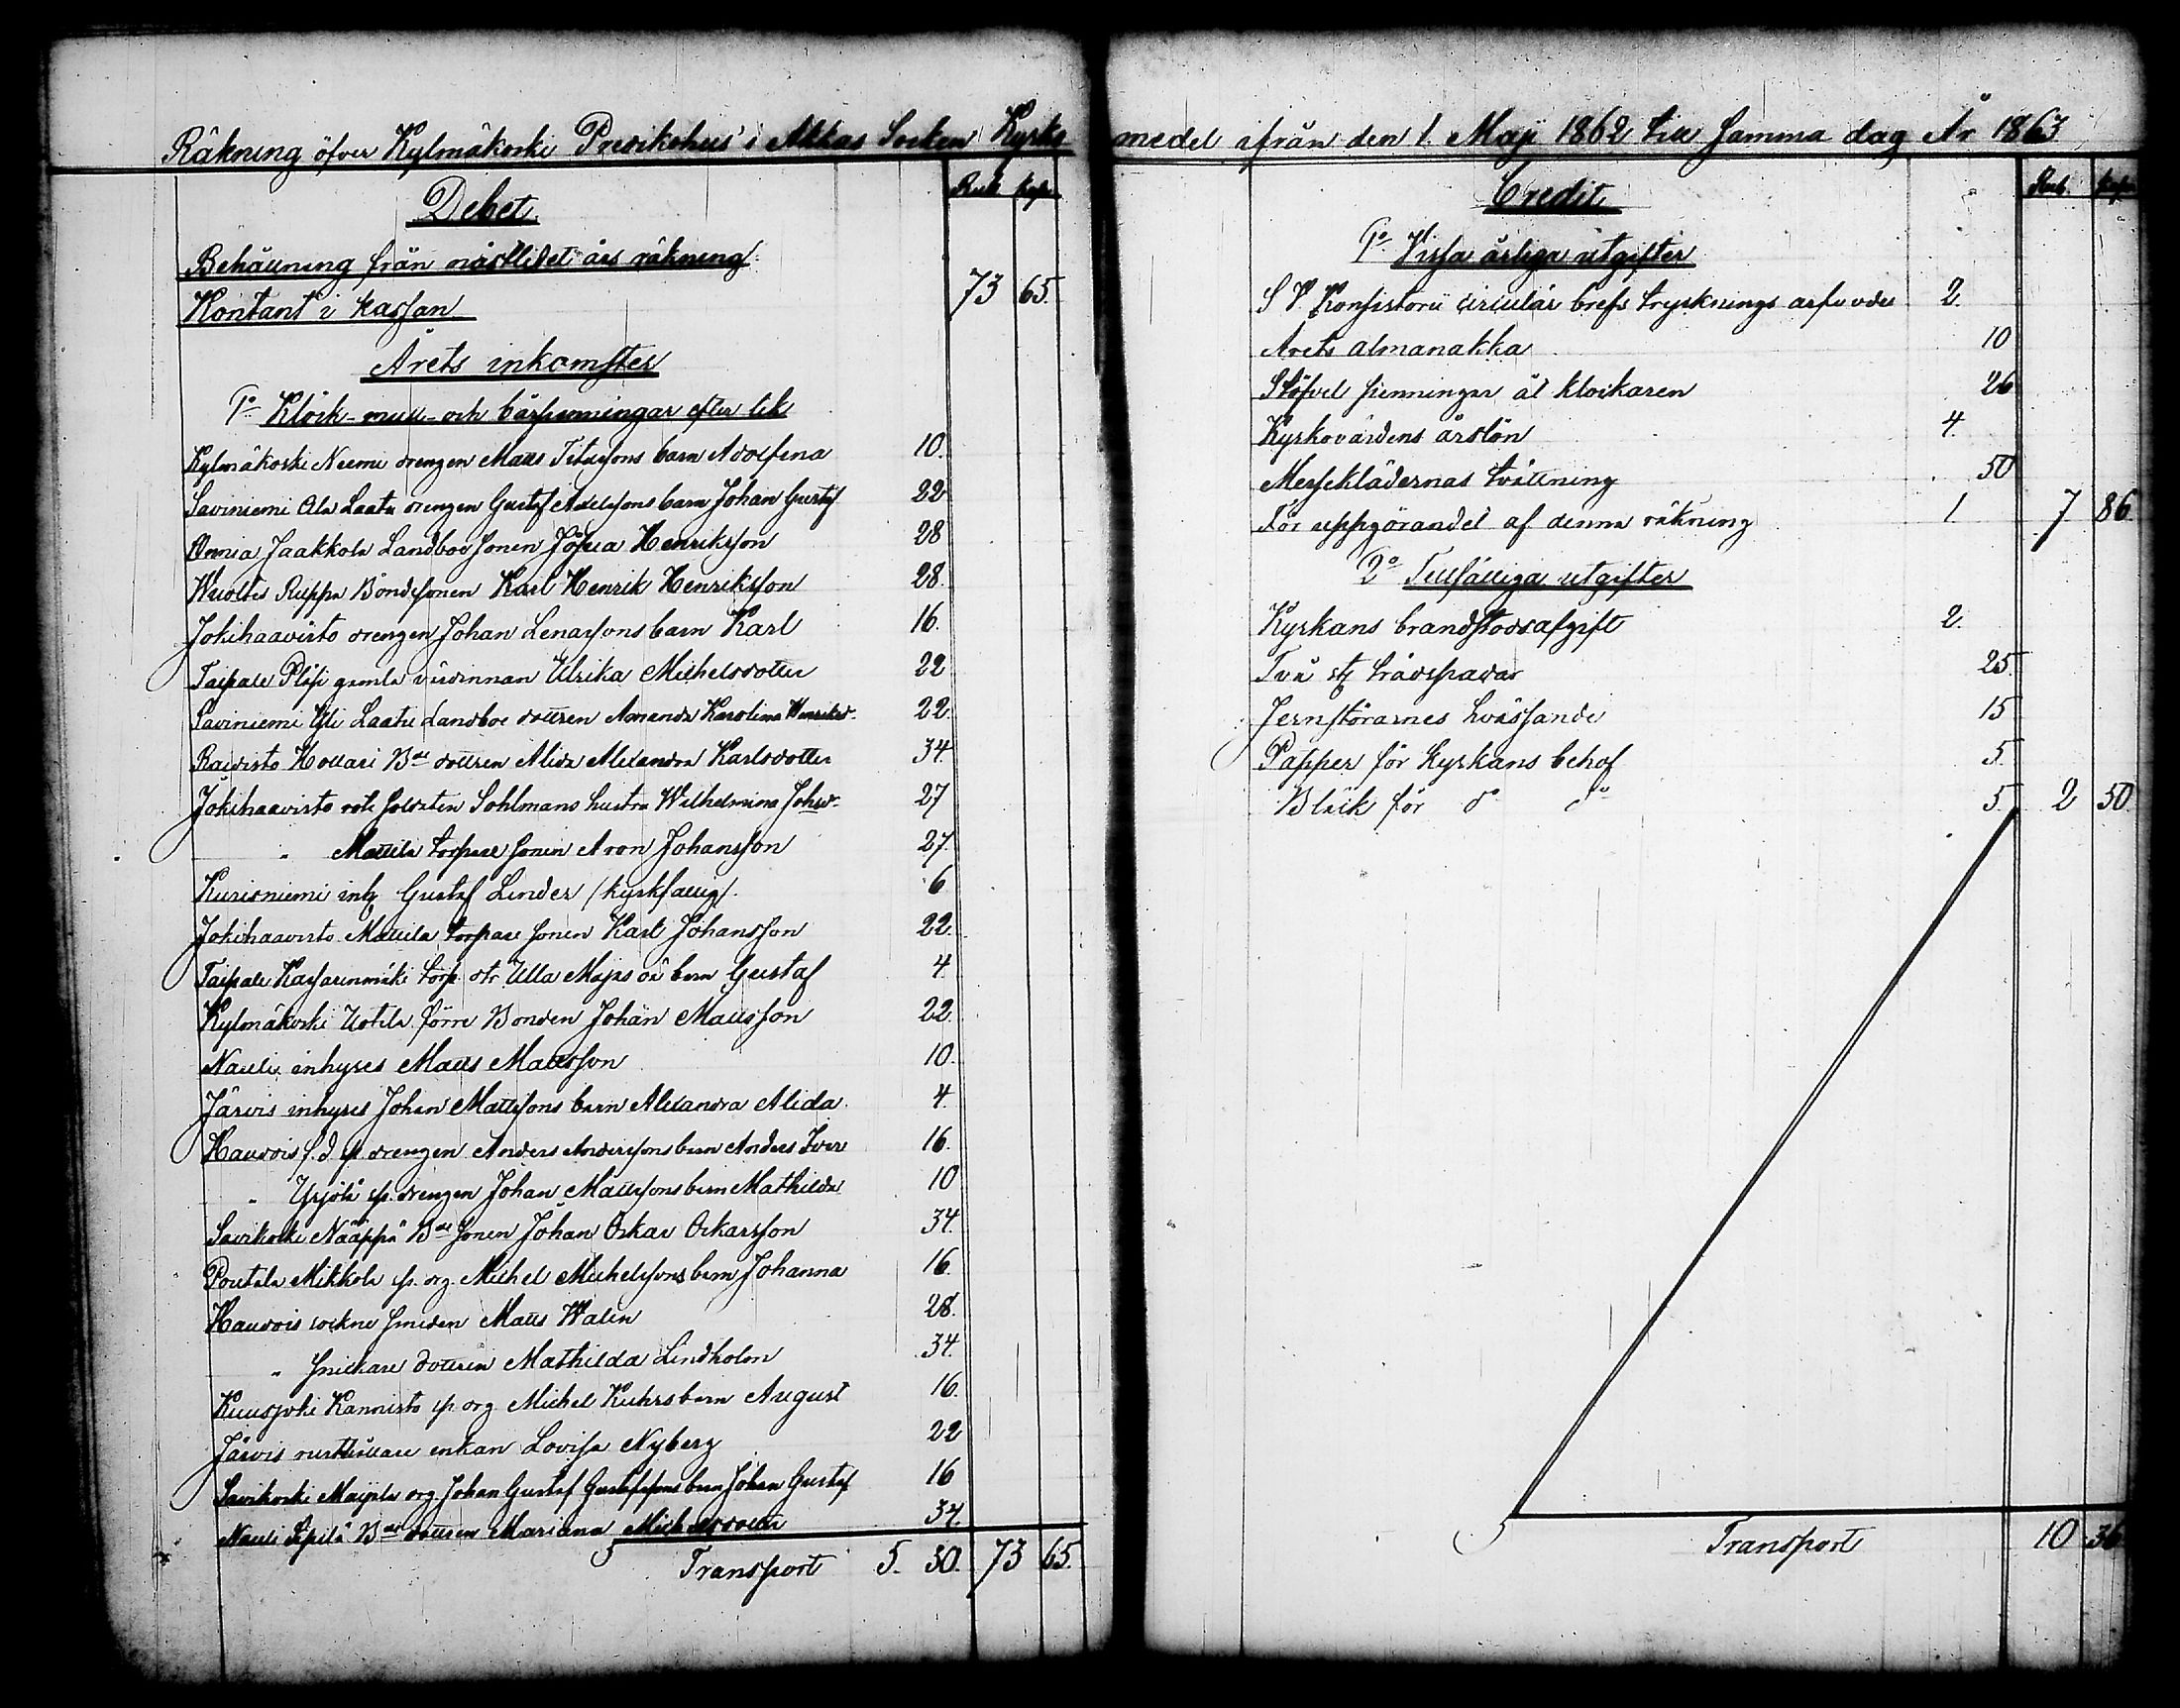 Räkning öfver Kylmäkoski Predikohus i Akkas Socken Kyrko medel ifrån den 1. Maji 1862 till samma dag År 1863
Debet
Rub. kop.
Behållning från nästlidet års räkning
Kontant i kassan 73 65.
Årets inkomster
1o Klock- mull- och bårpenningar efter lik
Kylmäkoski Niemi drengen Matts Titussons barn Adolfina 10.
Saviniemi Ala Laatu drengen Gustaf Adelssons barn Johan Gustaf 22
Annia Jaakkola Landboe sonen Josua Henriksson 28
Wuoltis Ruppa Bondesonen Karl Henrik Henriksson 28.
Jokihaavisto drengen Johan Lenassons barn Karl 16.
Taipale Pläsi gamla värdinnan Ulrika Michelsdotter 22
Saviniemi Yli Laatu Landboe dottren Amanda Karolina Henriksd. 22.
Raivisto Hollari Bde dottren Alida Alexandra Karlsdotter 34.
Jokihaavisto rote soldaten Sohlmans hustru Wilhelmina Johsd. 27
" Mattila torpare sonen Aron Johansson 27.
Kurisniemi inh Gustaf Linder /kyrkfattig/. 6
Jokihaavisto Mattila torpare sonen Karl Johansson 22.
Taipale Kasarinmäki torp. dtr Ulla Majas oä barn Gustaf 4.
Kylmäkoski Uotila förre Bonden Johan Mattsson 22.
Nauli inhyses Matts Mattsson 10.
Järvis inhyses Johan Mattssons barn Alexandra Alida. 4.
Haudois drengen Anders Anderssons barn Anders Iver 16.
" Yrjölä sp. drengen Johan Mattssons barn Mathilda 10
Savikoski Nääppä Bde sonen Johan Oskar Oskarsson 34.
Pontela Mikkola sp. drg. Michel Michelssons barn Johanna 16.
Haudois sockne smeden Matts Walin 28.
" snickare dottren Mathilda Lindholm 34.
Kuusjoki Kannisto sp. drg Michel Kuhrs barn August 16.
Järvis rusthållare enkan Lovisa Nyberg 22
Savikoski Maijala drg. Johan Gustaf Gustafssons barn Johan Gustaf 16
Nauli Sipilä Bde dottren Mariana Michelsdotter 34.
Transport 5. 30. 73 65.
Credit
Rub. kop.
1o Vissa årliga utgifter
S V Konsistorii circulär brefs trycknings arfvode 2.
Årets almanakka 10
Stöfvel penningar åt klockaren 26
Kyrkovärdens årslön 4.
Messeklädernas tvättning 50
För uppgörandet af denna räkning 1. 7 86.
2o Tillfälliga utgifter
Kyrkans brandstodsafgift 2.
Två st trädspadar 25.
Jernstörarnes hvässande 15
Papper för kyrkans behof 5.
Bläck för do do 5. 2 50.
Transport 10 36